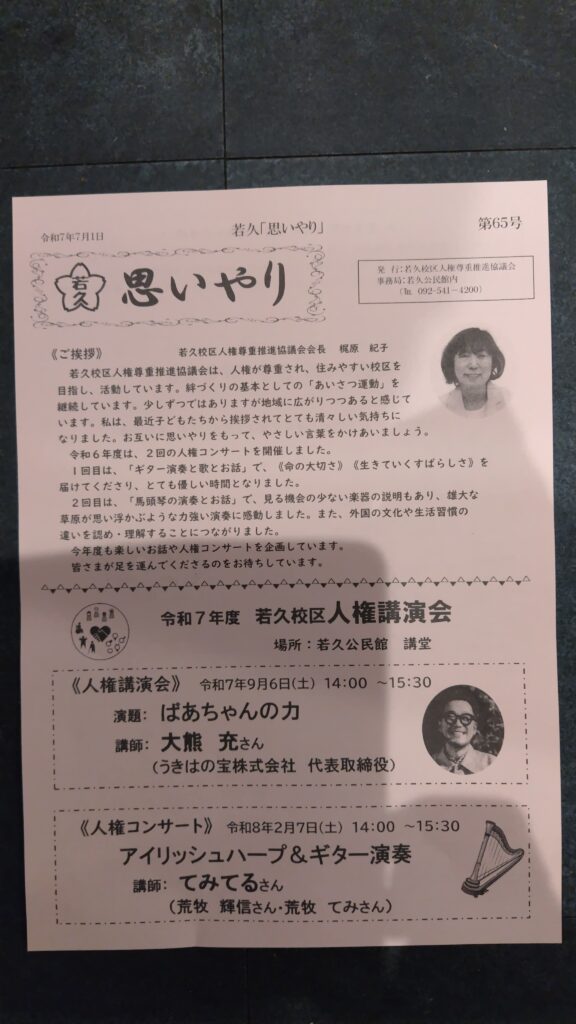 令和7年7月1日
若久「思いやり」
第65号
若久
思いやり
発 行:若久校区人権尊重推進協議会
事務局:若久公民館内
(℡ 092-541-4200)
《ご挨拶》 若久校区人権尊重推進協議会会長 梶原 紀子
若久校区人権尊重推進協議会は、人権が尊重され、住みやすい校区を
目指し、活動しています。絆づくりの基本としての「あいさつ運動」を
継続しています。少しずつではありますが地域に広がりつつあると感じて
います。私は、最近子どもたちから挨拶されてとても清々しい気持ちに
なりました。お互いに思いやりをもって、やさしい言葉をかけあいましょう。
令和6年度は、2回の人権コンサートを開催しました。
1回目は、「ギター演奏と歌とお話」で、《命の大切さ》《生きていくすばらしさ》を
届けてくださり、とても優しい時間となりました。
2回目は、「馬頭琴の演奏とお話」で、見る機会の少ない楽器の説明もあり、雄大な
草原が思い浮かぶような力強い演奏に感動しました。また、外国の文化や生活習慣の
違いを認め・理解することにつながりました。
今年度も楽しいお話や人権コンサートを企画しています。
皆さまが足を運んでくださるのをお待ちしています。
令和7年度 若久校区人権講演会
場所:若久公民館 講堂
《人権講演会》 令和7年9月6日(土) 14:00 ~15:30
演題: ばあちゃんの力
講師: 大熊 充さん
(うきはの宝株式会社 代表取締役)
《人権コンサート》 令和8年2月7日(土) 14:00 ~15:30
アイリッシュハープ&ギター演奏
講師: てみてるさん
(荒牧 輝信さん・荒牧 てみさん)